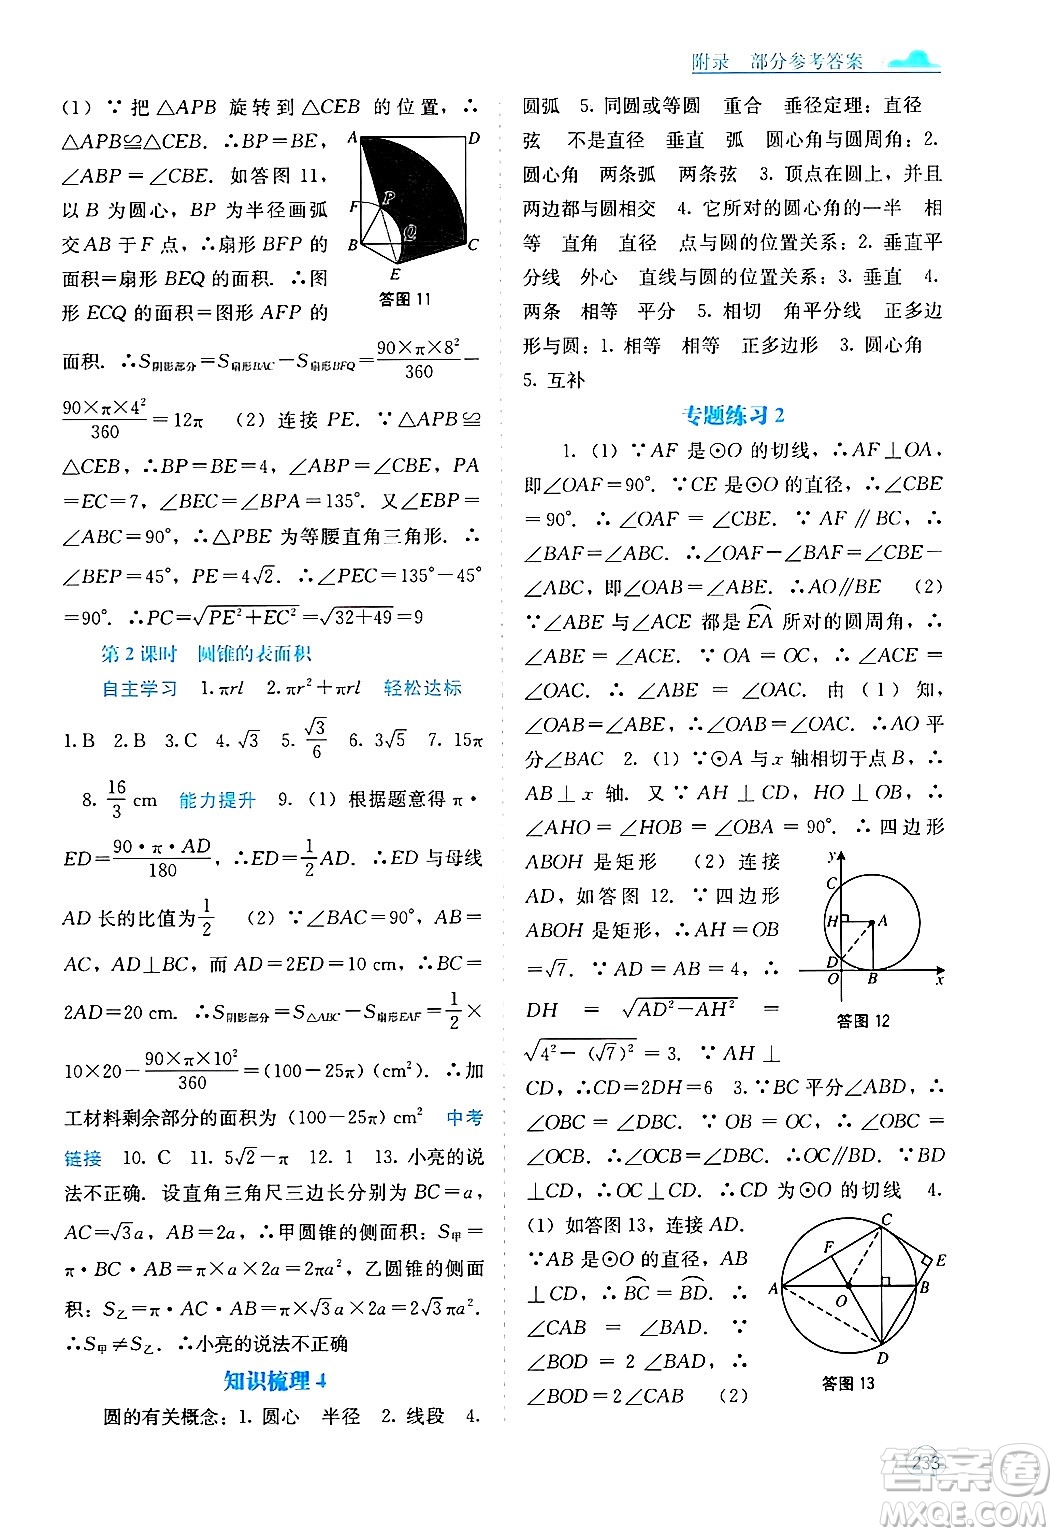 附录　部分参考答案
(1) ∵ 把 △APB 旋转到 △CEB 的位置, ∴
△APB≌△CEB. ∴BP=BE,
∠ABP=∠CBE. 如答图 11,
以 B 为圆心, BP 为半径画弧
交 AB 于 F 点, ∴扇形 BFP 的
面积=扇形 BEQ 的面积. ∴图
形 ECQ 的面积=图形 AFP 的
A D P F Q B C E
答图 11
面积. ∴S阴影部分=S扇形BAC−S扇形BFQ=90×π×8²/360−
90×π×4²/360=12π　(2) 连接 PE. ∵△APB≌
△CEB, ∴BP=BE=4, ∠ABP=∠CBE, PA
=EC=7, ∠BEC=∠BPA=135°. 又∠EBP=
∠ABC=90°, ∴△PBE 为等腰直角三角形. ∴
∠BEP=45°, PE=4√2. ∴∠PEC=135°−45°
=90°. ∴PC=√(PE²+EC²)=√(32+49)=9
第 2 课时　圆锥的表面积
自主学习　1. πrl　2. πr²+πrl　轻松达标
1. B　2. B　3. C　4. √3　5. √3/6　6. 3√5　7. 15π
8. 16/3 cm　能力提升　9. (1) 根据题意得 π·
ED=90·π·AD/180, ∴ED=1/2AD. ∴ED 与母线
AD 长的比值为1/2　(2) ∵∠BAC=90°, AB=
AC, AD⊥BC, 而 AD=2ED=10 cm. ∴BC=
2AD=20 cm. ∴S阴影部分=S△ABC−S扇形EAF=1/2×
10×20−90×π×10²/360=(100−25π)cm². ∴加
工材料剩余部分的面积为 (100−25π)cm²　中考
链接　10. C　11. 5√2−π　12. 1　13. 小亮的说
法不正确. 设直角三角尺三边长分别为 BC=a,
AC=√3a, AB=2a, ∴甲圆锥的侧面积: S甲=
π·BC·AB=π×a×2a=2πa², 乙圆锥的侧面
积: S乙=π·AC·AB=π×√3a×2a=2√3πa².
∴S甲≠S乙. ∴小亮的说法不正确
知识梳理 4
圆的有关概念: 1. 圆心　半径　2. 线段　4.
圆弧　5. 同圆或等圆　重合　垂径定理: 直径
弦　不是直径　垂直　弧　圆心角与圆周角: 2.
圆心角　两条弧　两条弦　3. 顶点在圆上, 并且
两边都与圆相交　4. 它所对的圆心角的一半　相
等　直角　直径　点与圆的位置关系: 2. 垂直平
分线　外心　直线与圆的位置关系: 3. 垂直　4.
两条　相等　平分　5. 相切　角平分线　正多边
形与圆: 1. 相等　相等　正多边形　3. 圆心角
5. 互补
专题练习 2
1. (1) ∵AF 是⊙O 的切线, ∴AF⊥OA,
即∠OAF=90°. ∵CE 是⊙O 的直径, ∴∠CBE
=90°. ∴∠OAF=∠CBE. ∵AF∥BC, ∴
∠BAF=∠ABC. ∴∠OAF−∠BAF=∠CBE−
∠ABC, 即∠OAB=∠ABE. ∴AO∥BE　(2)
∵∠ABE 与∠ACE 都是EA⌒所对的圆周角, ∴
∠ABE = ∠ACE. ∵ OA = OC, ∴ ∠ACE =
∠OAC. ∴ ∠ABE = ∠OAC. 由 (1) 知,
∠OAB=∠ABE, ∴∠OAB=∠OAC. ∴AO 平
分∠BAC　2. (1) ∵⊙A 与 x 轴相切于点 B, ∴
AB⊥x 轴. 又 ∵AH⊥CD, HO⊥OB, ∴
∠AHO=∠HOB=∠OBA=90°. ∴四边形
ABOH 是矩形　(2) 连接
AD, 如答图 12. ∵四边形
ABOH 是矩形, ∴AH=OB
=√7. ∵AD=AB=4, ∴
DH = √(AD²−AH²) =
√(4²−(√7)²)=3. ∵AH⊥
y C H A D O B x
答图 12
CD, ∴CD=2DH=6　3. ∵BC 平分∠ABD, ∴
∠OBC = ∠DBC. ∵ OB = OC, ∴ ∠OBC =
∠OCB. ∴∠DBC=∠OCB. ∴OC∥BD. ∵BD
⊥CD, ∴OC⊥CD. ∴CD 为⊙O 的切线　4.
(1) 如答图 13, 连接 AD.
∵AB 是⊙O 的直径, AB
⊥CD, ∴BC⌒=BD⌒. ∴
∠CAB = ∠BAD. ∵
∠BOD = 2 ∠BAD, ∴
∠BOD=2∠CAB　(2)
C F E A O B D
答图 13
233
答案圈
MXQE.COM